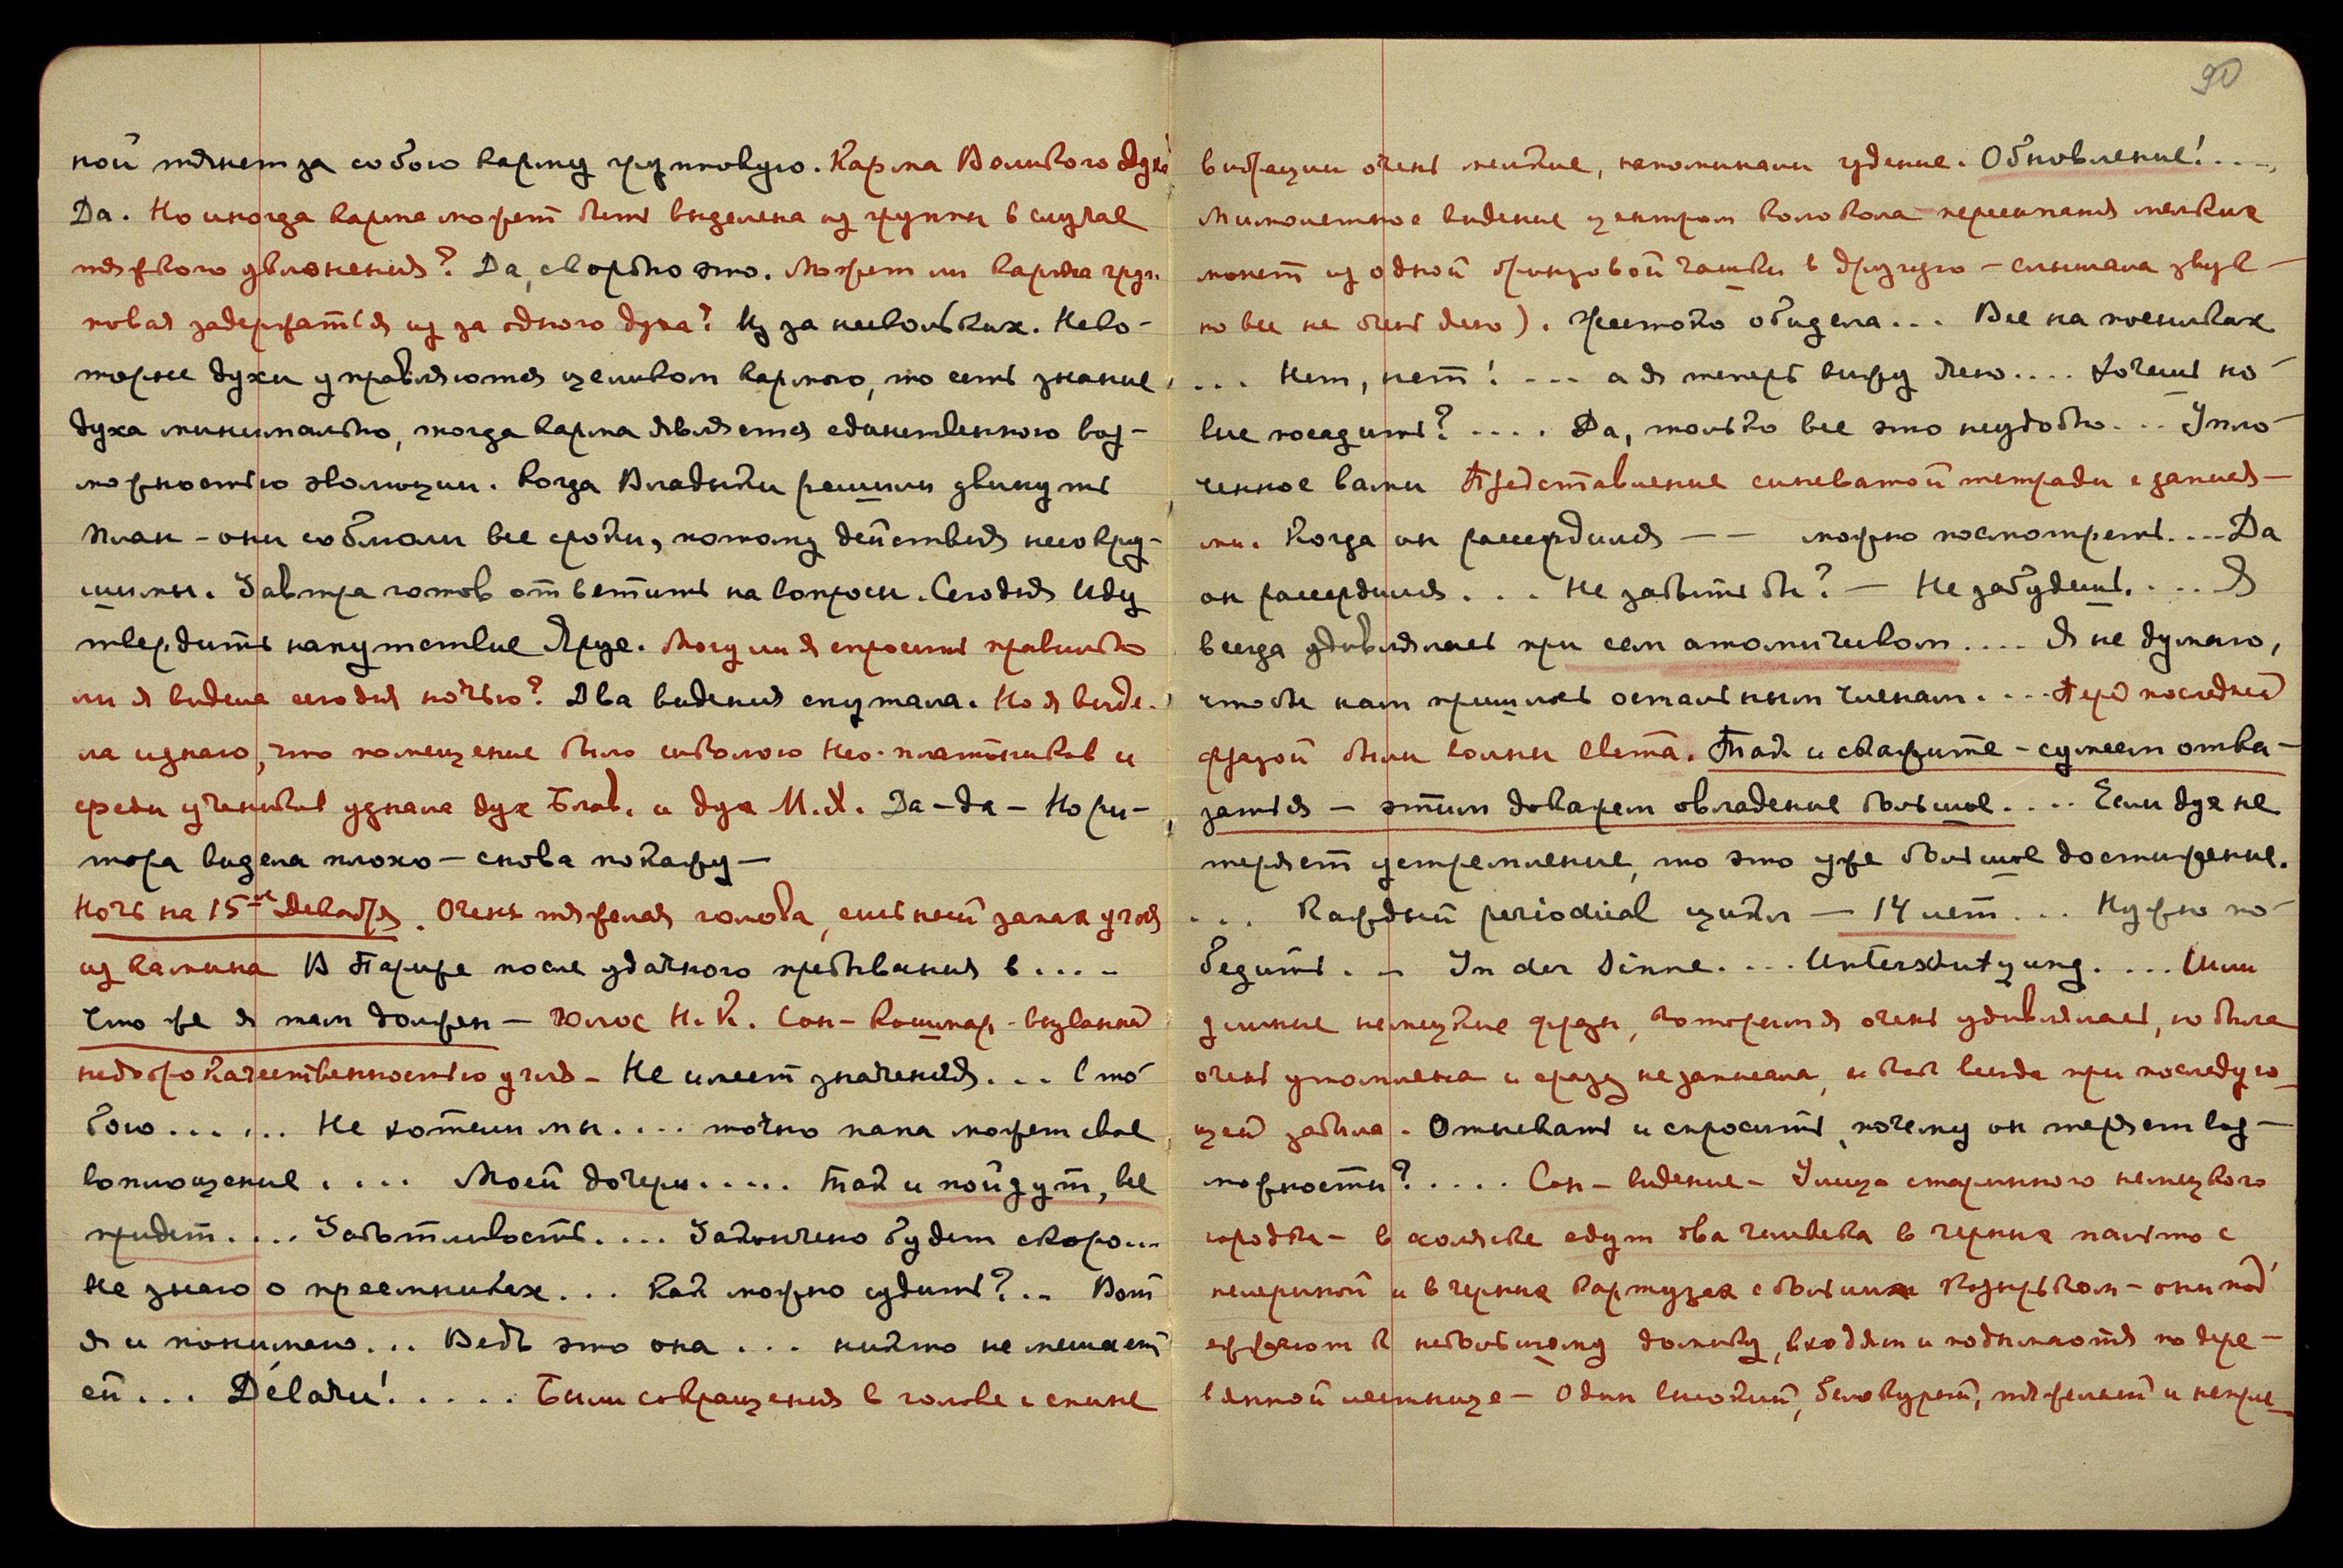 ной тянет за собою карму групповую. Карма Великого Духа
Да. Но иногда карма может быть выделена из группы в случае
тяжкого уклонения? Да, скорбно это. Может ли карма груп-
повая задержаться из за одного духа? Из за нескольких. Неко-
торые духи управляются целиком кармою, то есть знание
духа минимально, тогда карма является единственною воз-
можностью эволюции. Когда Владыки решили двинуть
План – они соблюли все сроки, потому действия несокру-
шимы. Завтра готов ответить на вопросы. Сегодня Иду
твердить напутствие Яруе. Могу ли я спросить правильно
ли я видела сегодня ночью? Два видения спутала. Но я виде-
ла и знаю, что помещение было школою Нео-платоников и
среди учеников узнала дух Блав. и дух М.Х. Да – да – Но ри-
тора видела плохо – снова покажу –
Ночь на 15-ое Декабря. Очень тяжелая голова, сильный запах угля
из камина В Париже после удачного пребывания в ....
Что же я там должен – голос Н.К. Сон – кошмар – вызванный
недоброкачественностью угля – Не имеет значения... С то-
бою...... Не хотели мы.... точно папа может свое
воплощение .... Моей дочери..... Так и пойдут, все
придет.... Заботливость.... Закончено будет скоро...
Не знаю о преемниках... Как можно судить?.. Вот
я и понимаю... Ведь это она... никто не мешает
ей... Délachi!..... Были сокращения в голове и спине
90
вибрации очень мелкие, напоминали гудение. Обновление!....
Мимолетное видение центром колокола пересыпания мелких
монет из одной бронзовой чашки в другую – слышала звук –
но все не очень ясно). Жестоко обидела... Все на поенивах
... Нет, нет! --- а я теперь вижу ясно.... Хочешь но-
вые посадить? .... Да, только все это неудобно... Упло-
ченное вами Представление синеватой тетради с запися-
ми. Когда он рассердился – – можно посмотреть....Да
он рассердился... Не забыть бы? – Не забудешь.... Я
всегда удивлялась при сем атомичивом.... Я не думаю,
чтобы нам пришлось остальным членам.... Перед последней
фразой были волны света. Так и скажите – сумеем отка-
заться – этим докажем овладение большое.... Если дух не
теряет устремление, то это уже большое достижение.
... Каждый periodical цикл – 14 лет... Нужно по-
бедить. .. In der Sinne.... Unterstutzung.... Шли
длинные немецкие фразы, которым я очень удивлялась, но была
очень утомлена и сразу не записала, и как всегда при последую-
щей забыла. Отыскать и спросить, почему он теряет воз-
можности?.... Сон – видение – Улица старинного немецкого
городка – в коляске едут два человека в черных пальто с
пелериной и в черных картузах с большим козырьком – они подъ-
езжают к небольшому домику, входят и поднимаются по дере-
вянной лестнице – Один высокий, белокурый, тяжелый и непри-